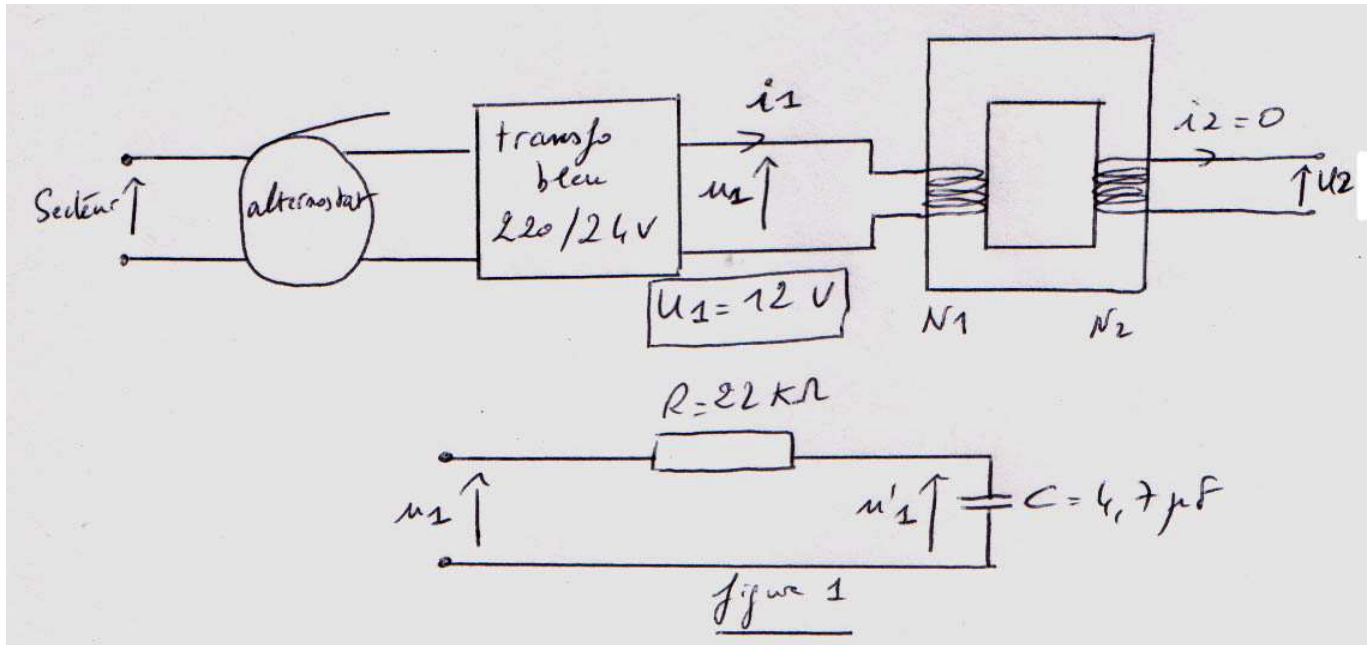 Secteur
alternostat
transfo
bleu
220/24V
i1
u1
U1 = 12 V
N1
N2
i2 = 0
u2
R = 22 KΩ
u1
u'1
C = 4,7 µF
figure 1